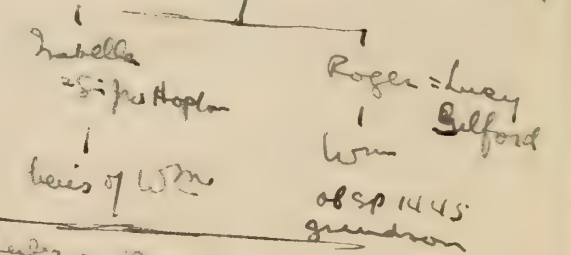 Isabella
= Hopton
heirs of Wm
Roger = Lucy
Gulford
Wm
ob SP 1445
grandson